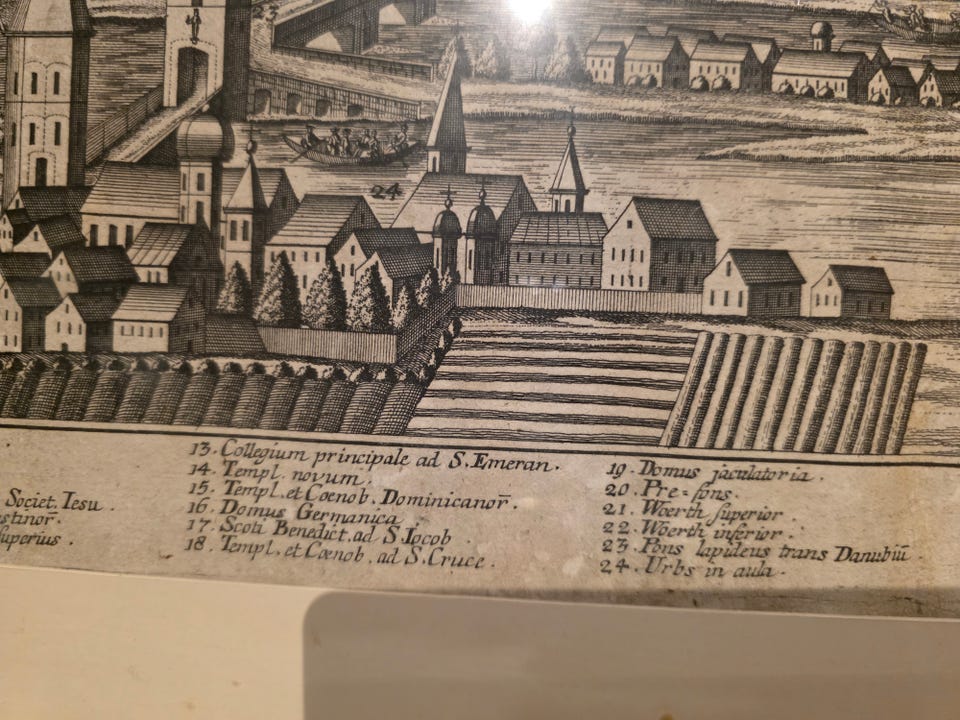 24
Societ. Iesu.
stinor̄.
superius.
13. Collegium principale ad S. Emeran.
14. Templ. novum.
15. Templ. et Cœnob. Dominicanor̄.
16. Domus Germanica
17. Scoti Benedict. ad S Iocob.
18. Templ. et Cœnob. ad S. Cruce.
19. Domus jaculatoria.
20. Pre=fons.
21. Woerth superior.
22. Woerth inferior.
23. Pons lapideus trans Danubiū.
24. Urbs in aula.